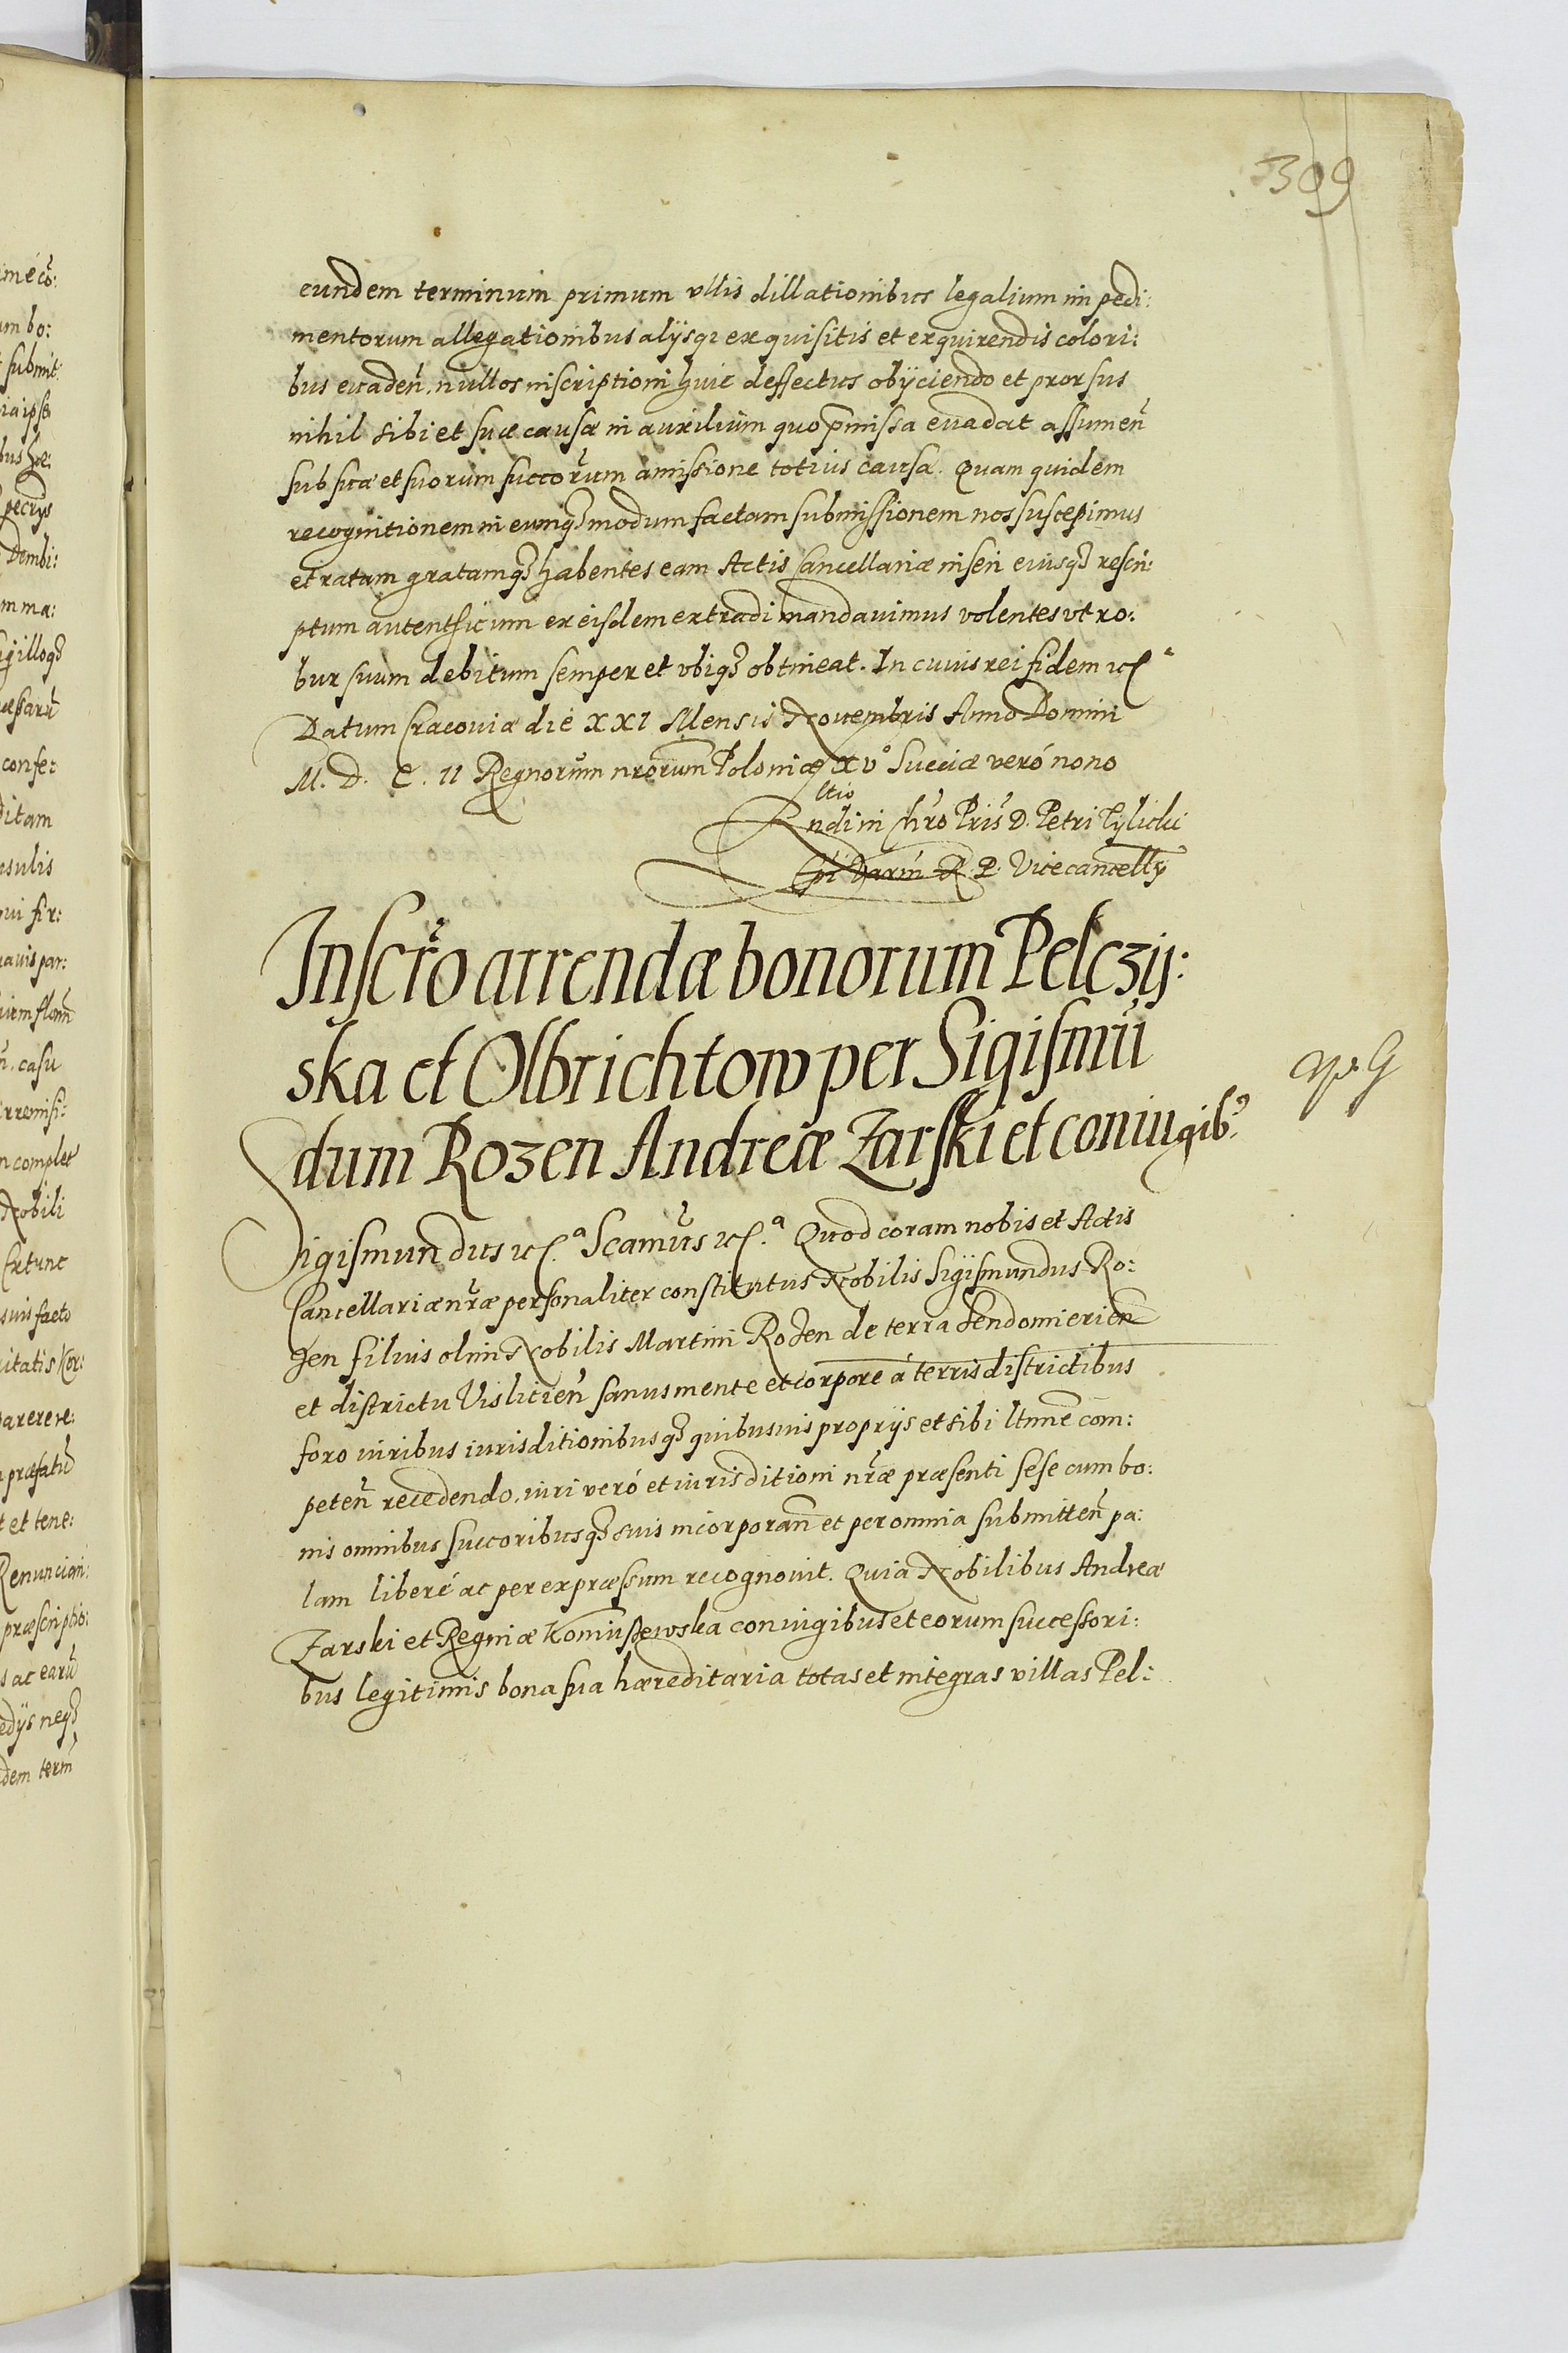 309
eundem terminum primum vllis dillationibus legalium impedi:
mentorum allegationibus alijsqz exquisitis et exquirendis colori:
bus euadeñ. nullos inscriptioni huic deffectus obijciendo et prorsus
nihil sibi et suæ causæ in auxilium quo p̄missa euadat assumeñ
sub suæ et suorum succor̃um amissione totius causæ. Quam quidem
recognitionem in eumq3 modum factam submissionem nos suscepimus
et ratam gratamq3 habentes eam Actis Cancellariæ inseri eiusq3 rescri:
ptum autenthicum ex eisdem extradi mandauimus volentes vt ro:
bur suum debitum semper et vbiq3 obtineat. In cuius rei fidem etc.ª
Datum Cracouiæ die XXI Mensis Nouembris Anno Domini
M. D. C. II Regnorum nrorum Poloniæ xv° Sueciæ veró nono
ltio
Rndi in Chro Pris D. Petri Tylicki
Epi Varm R. P. Vicecancellʒ
Inscr̃o arrendæ bonorum Pelczij:
ska et Olbrichtow per Sigismũ
dum Rozen Andreæ Zarski et coniugib9.
Sigismundus etc.ª Scamus etc.ª Quod coram nobis et Actis
Cancellariæ nr̃æ personaliter constitutus Nobilis Sigismundus Ro:
zen filius olim Nobilis Martini Rozen de terra Sendomirieñ
et districtu Vislicieñ sanus mente et corpore á terris districtibus
foro iuribus iurisditionibusq3 quibusuis proprijs et sibi ltime com:
peteñ recedendo, iuri veró et iurisditioni nr̃æ præsenti sese cum bo:
nis omnibus succoribusq3 suis incorporañ et per omnia submitteñ pa:
lam liberé ac per expræssum recognouit. Quia Nobilibus Andreæ
Zarski et Reginæ Komissewska coniugibus et eorum successori:
bus legitimis bona sua hæreditaria totas et integras villas Pel: